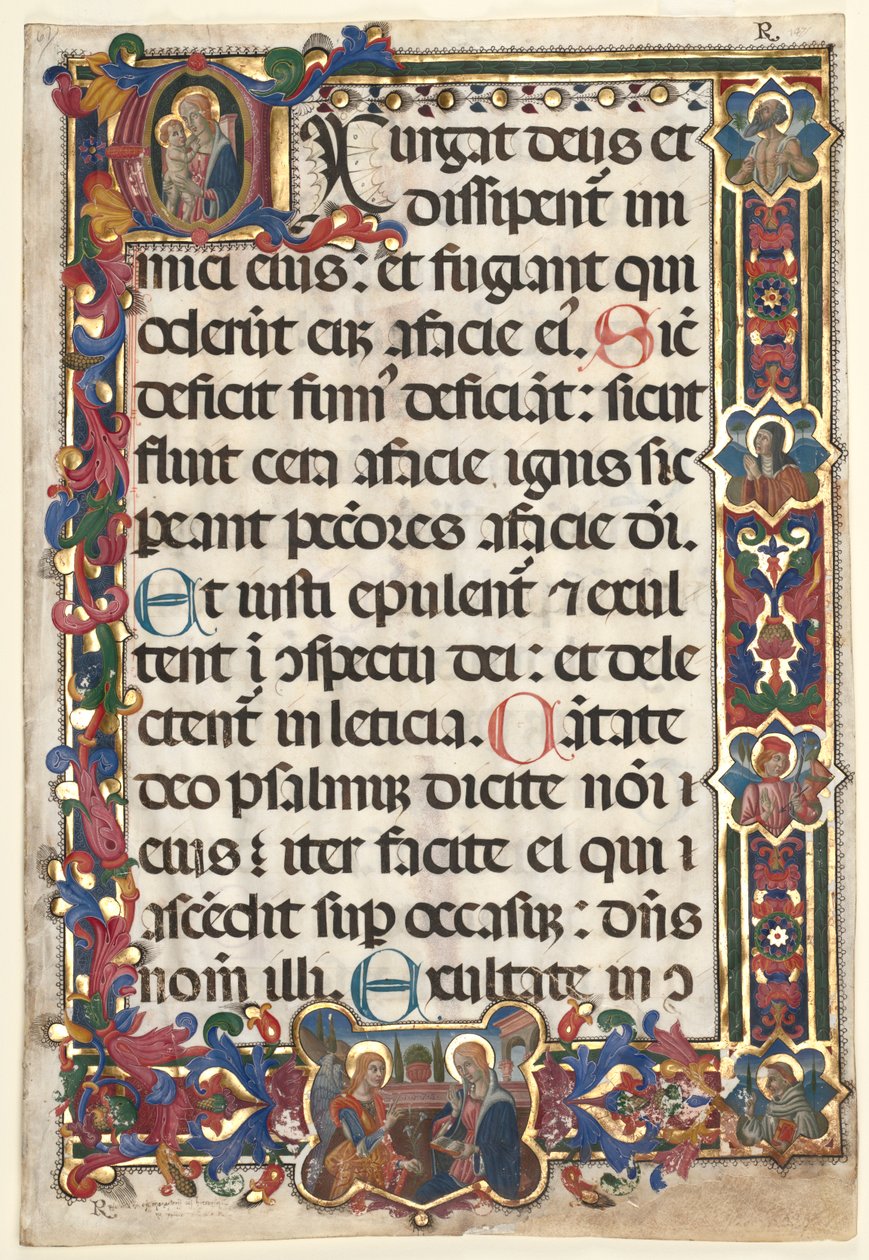 R.
EXurgat deus et
dissipent᷑ ini
mici eius: et fugiant qui
oderūt eūꝫ afacie ei᾽. Sic̄
deficit fum᾽ deficiāt: sicut
fluit cera afacie ignis sic
ꝑeant pec̄ores afacie dī.
Et iusti epulent᷑ ⁊ exul
tent ī ɔspectu dei: et dele
ctent᷑ in leticia. Cātate
deo psalmuꝫ dicite nōi ı
eius: iter facite ei qui ı
ascēdit suꝑ occasuꝫ: dn̄s
nom̄ illi. Exultate in ɔ
R